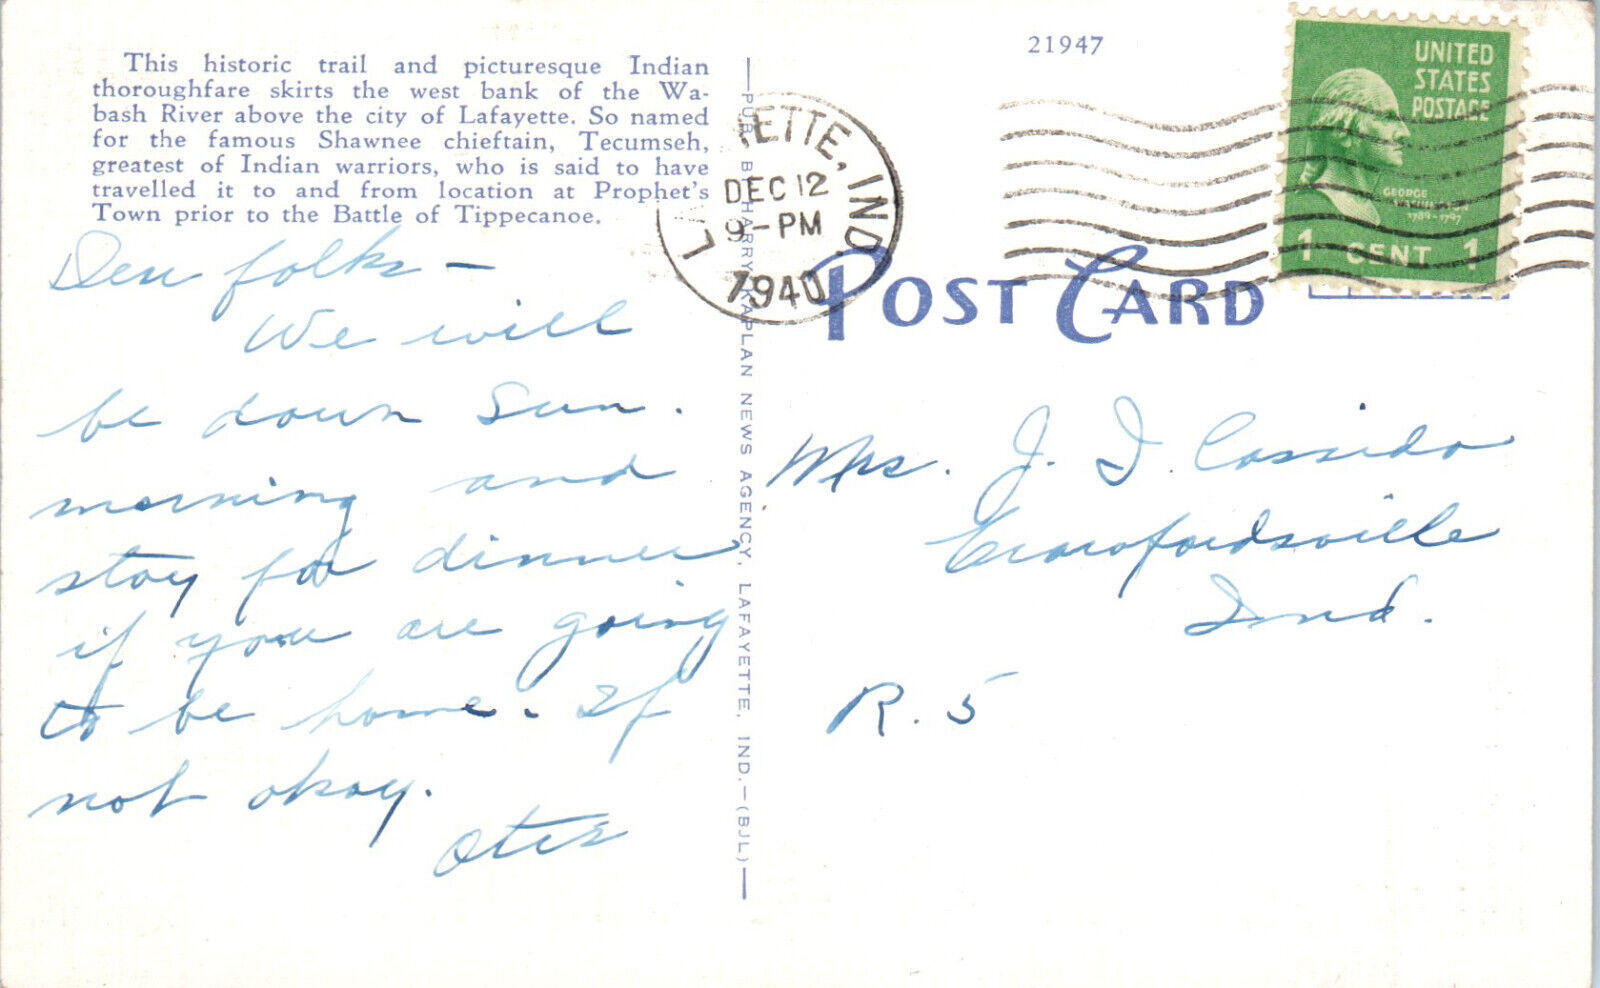 This historic trail and picturesque Indian
thoroughfare skirts the west bank of the Wa-
bash River above the city of Lafayette. So named
for the famous Shawnee chieftain, Tecumseh,
greatest of Indian warriors, who is said to have
travelled it to and from location at Prophet's
Town prior to the Battle of Tippecanoe.
Dear folks —
We will
be down Sun.
morning and
stay for dinner
if you are going
to be home. If
not okay.
Otis
—PUB. BY HARRY KAPLAN NEWS AGENCY, LAFAYETTE, IND.—(BJL)—
L ETTE, IND
DEC 12
9-PM
1940
21947
UNITED
STATES
POSTAGE
GEORGE
WASHINGTON
1789-1797
1 CENT 1
POST CARD
Mrs. J. D. Cassida
Crawfordsville
Ind.
R. 5